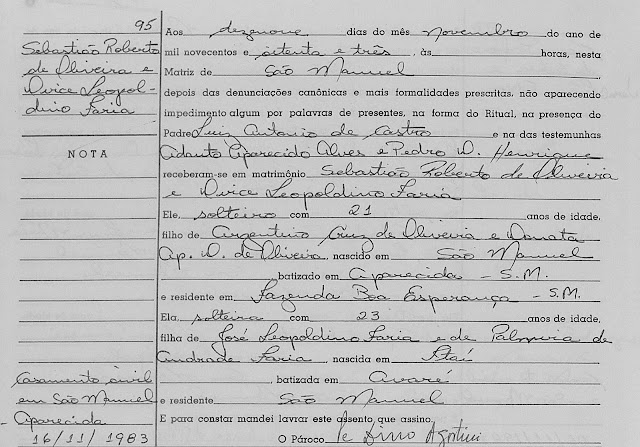 95
Sebastião Roberto
de Oliveira e
Dirce Leopol-
dino Faria
NOTA
Casamento civil
em São Manuel
- Aparecida
16/11/1983
Aos dezenove dias do mês novembro do ano de
mil novecentos e oitenta e três, às horas, nesta
Matriz de São Manuel
depois das denunciações canônicas e mais formalidades prescritas, não aparecendo
impedimento algum por palavras de presentes, na forma do Ritual, na presença do
Padre Luiz Antonio de Castro e na das testemunhas
Adauto Aparecido Alves e Pedro D. Henrique
receberam-se em matrimônio Sebastião Roberto de Oliveira
e Dirce Leopoldino Faria
Ele, solteiro com 21 anos de idade,
filho de Argentino Cruz de Oliveira e Donata
Ap. D. de Oliveira, nascido em São Manuel
, batizado em Aparecida - S.M.
e residente em Fazenda Boa Esperança - S.M.
Ela, solteira com 23 anos de idade,
filha de José Leopoldino Faria e de Palmira de
Andrade Faria, nascida em Itaí
, batizada em Avaré
e residente São Manuel
E para constar mandei lavrar este assento que assino.
O Pároco Pe Dino Agostini